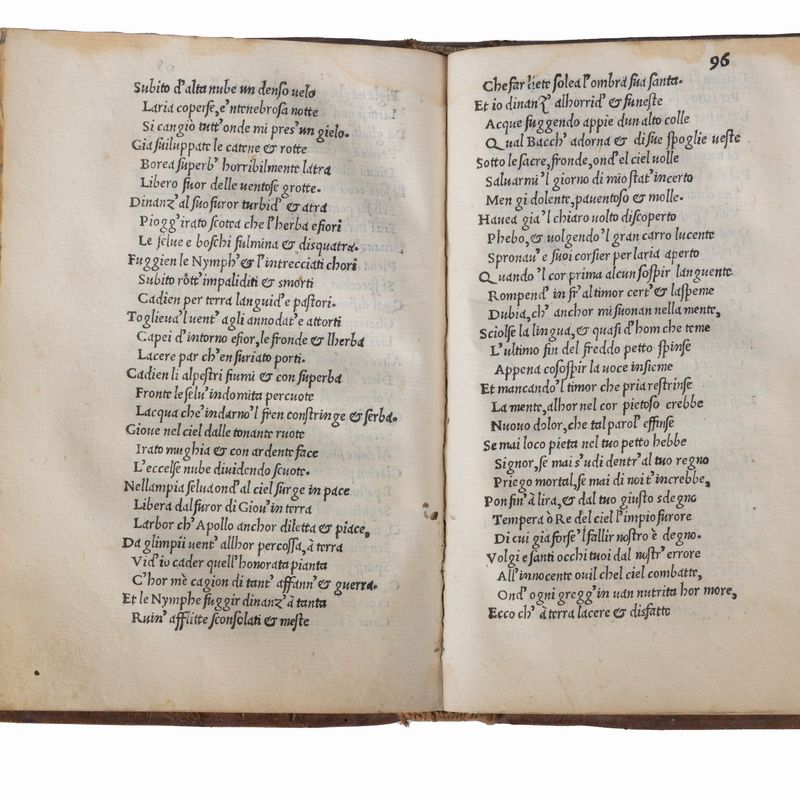 Subito d'alta nube un denso uelo
Laria coperse, e'ntenebrosa notte
Si cangio tutt'onde mi pres'un gielo.
Gia suiluppate le catene & rotte
Borea superb' horribilmente latra
Libero fuor delle uentose grotte.
Dinanz'al suo furor turbid' & atra
Piogg'irato scotea che l'herba e fiori
Le selue e boschi fulmina & disquatra.
Fuggien le Nymph' & l'intrecciati chori
Subito rott' impaliditi & smorti
Cadien per terra languid' e pastori.
Toglieua'l uent' agli annodat' e attorti
Capei d'intorno e fior, le fronde & lherba
Lacere par ch'enfuriato porti.
Cadien li alpestri fiumi & con superba
Fronte le selu' indomita percuote
Lacqua che'indarno'l fren constringe & serba.
Gioue nel ciel dalle tonante ruote
Irato mughia & con ardente face
L'eccelse nube diuidendo scuote.
Nellampia selua ond'al ciel surge in pace
Libera dal furor di Giou' in terra
Larbor ch'Apollo anchor diletta & piace,
Da glimpii uent' allhor percossa, à terra
Vid' io cader quell'honorata pianta
C'hor m'è cagion di tant' affann' & guerra.
Et le Nymphe fuggir dinanz' à tanta
Ruin' afflitte sconsolati & meste
96
Che far liete solea l'ombra sua santa.
Et io dinanz' alhorrid' & funeste
Acque fuggendo appie dun alto colle
Qual Bacch' adorna & di sue spoglie ueste
Sotto le sacre, fronde, ond'el ciel uolle
Saluarmi'l giorno di mio stat' incerto
Men gi dolente, pauentoso & molle.
Hauea gia'l chiaro uolto discoperto
Phebo, & uolgendo'l gran carro lucente
Spronau' e suoi corsier per laria aperto
Quando'l cor prima alcun sospir languente
Rompend' in fr'al timor cert' & laspeme
Dubia, ch' anchor mi suonan nella mente,
Sciolse la lingua, & quasi d'hom che teme
L'ultimo fin del freddo petto spinse
Appena co sospir la uoce insieme
Et mancando'l timor che pria restrinse
La mente, alhor nel cor pietoso crebbe
Nuouo dolor, che tal parol' effinse
Se mai loco pieta nel tuo petto hebbe
Signor, se mai s'udi dentr'al tuo regno
Priego mortal, se mai di noi t'increbbe,
Pon fin' à lira, & dal tuo giusto sdegno
Tempera ò Re del ciel l'impio furore
Di cui gia forse'l fallir nostro è degno.
Volgi e santi occhi tuoi dal nostr' errore
All'innocente ouil chel ciel combatte,
Ond' ogni gregg' in uan nutrita hor more,
Ecco ch' à terra lacere & disfatte